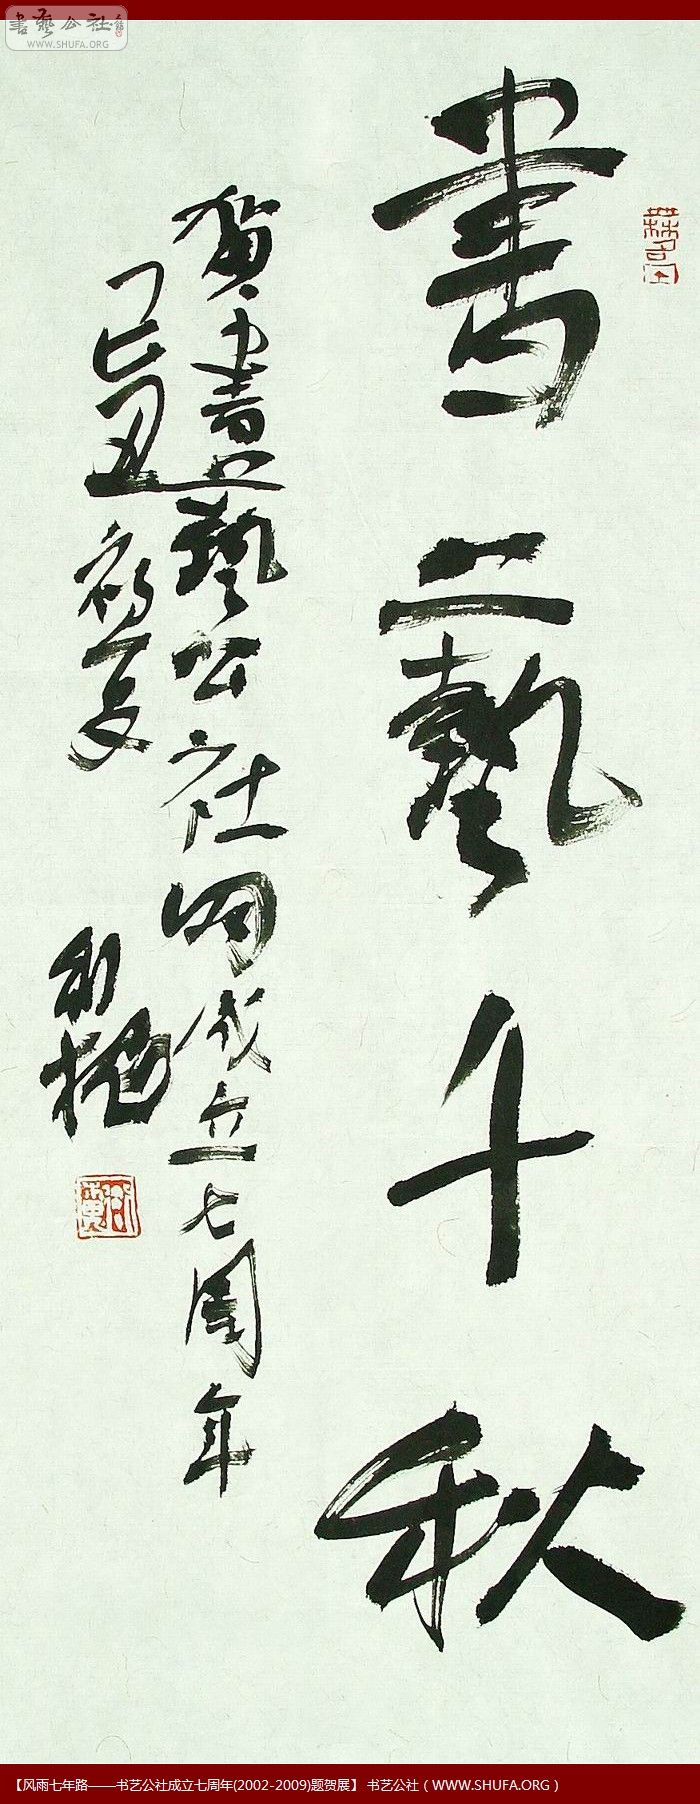 書藝公社
WWW.SHUFA.ORG
書藝千秋
賀書藝公社网成立七周年
己丑初夏
【风雨七年路——书艺公社成立七周年(2002-2009)题贺展】 书艺公社（WWW.SHUFA.ORG）